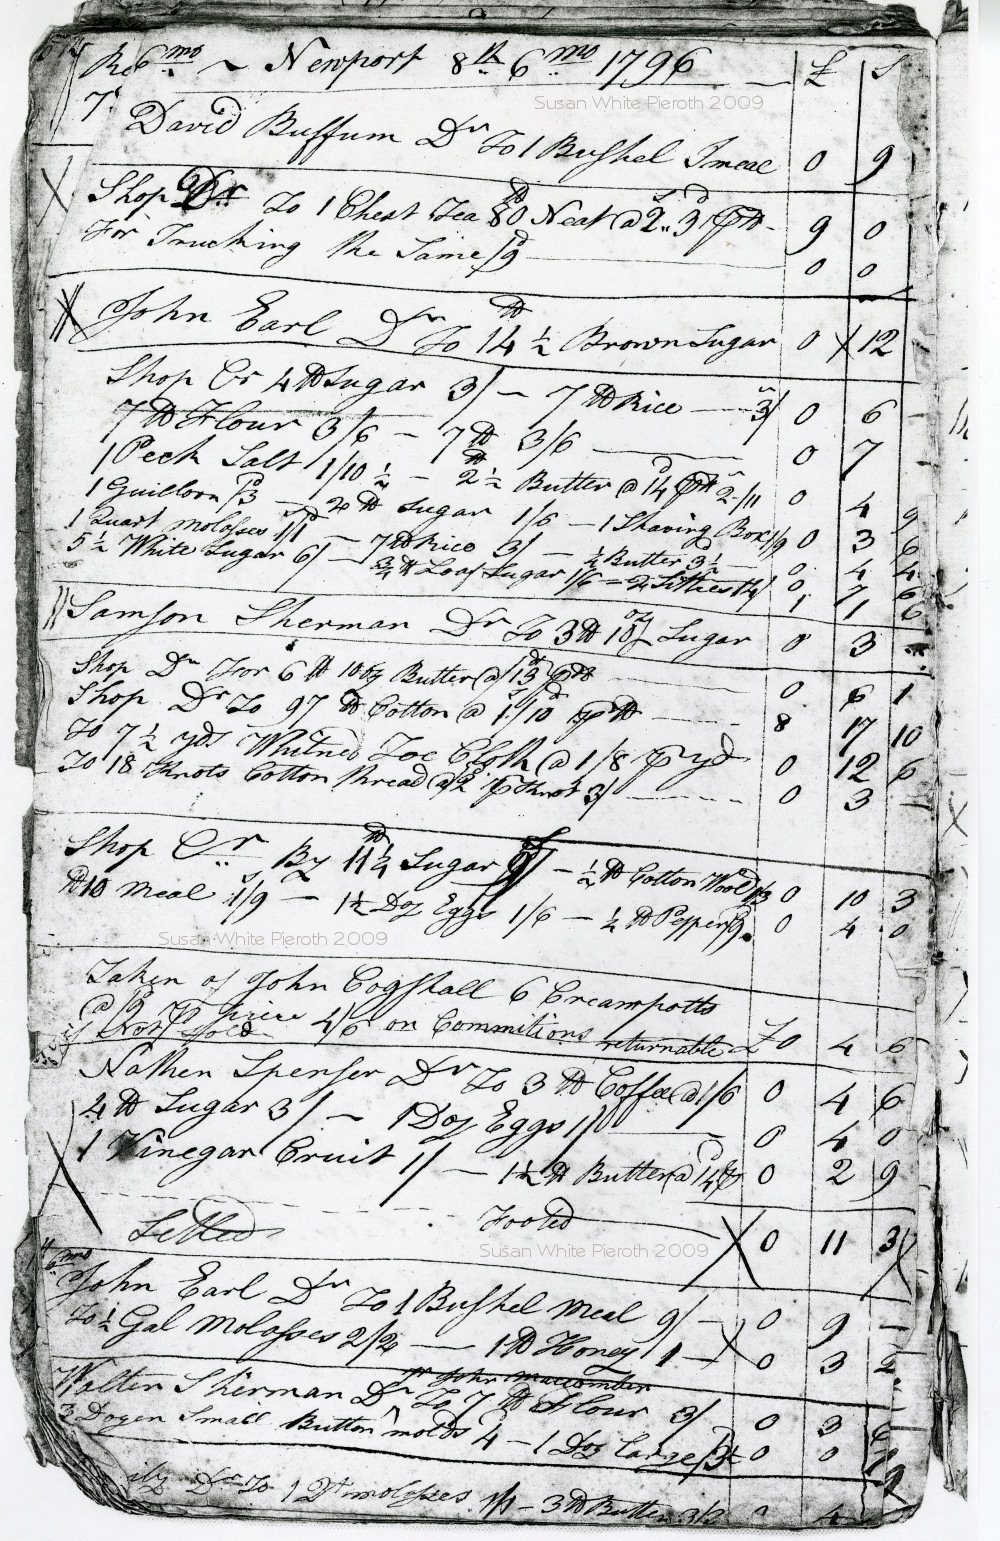 6 mo ~ Newport 8th 6mo 1796 £ S
Susan White Pieroth 2009
David Buffum Dr To 1 Bushel Imeal 0 9
Shop Dr To 1 Chest Tea 80 lb Neat @ 2.. 3 p lb 9 0
For Trucking the Same /9 0 0
John Earl Dr To 14 ½ lb Brown Sugar 0 12
Shop Cr 4 lb Sugar 3/ – 7 lb Rice 3/ 0 6
7 lb Flour 3/6 – 7 lb 3/6 0 7
1 Peck Salt 1/10 ½ – 2 ½ lb Butter @ 14 p lb 2/11 0 4 9
1 /3 – 2 lb Sugar 1/6 – 1 Shaving Box 1/9 0 3 6
1 Quart Molasses 1/1 – 7 lb Rice 3/ – ½ Butter 0 4 4
5 ½ White Sugar 6/ – ¾ lb Loaf Sugar 1/6 1 11 6
Samson Sherman Dr To 3 lb 10 oz Sugar 0 3
Shop Dr For 6 lb 10 oz Butter @ /13 p lb 0 6 1
Shop Dr To 97 lb Cotton @ 1/10 p lb 8 17 10
To 7 ½ yds Whitned Toe Cloth @ 1/8 p yd 0 12 6
To 18 Knots Cotton thread @ 2 p Knot 3/ 0 3 –
Shop Cr By 11 ¼ lb Sugar 9/ – ½ lb Cotton Wool 1/3 0 10 3
lb 10 meal 1/9 – 1 ½ Doz Eggs 1/6 – ¼ lb Pepper /9 0 4 0
Susan White Pieroth 2009
Taken of John Cogshall 6 Creampotts
@ /9 p piece 4/6 on Commitions returnable £0 4 6
if Not Sold
Nathen Spenser Dr To 3 lb Coffee @ 1/6 0 4 6
4 lb Sugar 3/ – 1 Doz Eggs 1/ 0 4 0
1 Vinegar Cruit 1/ – 1 ½ lb Butter @ 14 p 0 2 9
Settled Footed 0 11 3
Susan White Pieroth 2009
6 mo
John Earl Dr To 1 Bushel meal 9/ – 0 9 –
To ½ Gal Molasses 2/2 – 1 lb Honey 1 – 0 3 2
pr John Macomber
Walter Sherman Dr To 7 lb Flour 3/ 0 3 6
3 Dozen Small Button molds 4 – 1 Doz large /3 0 0
Dr To 1 Qt molasses 1/1 – 3 lb Butter 3/3 0 4